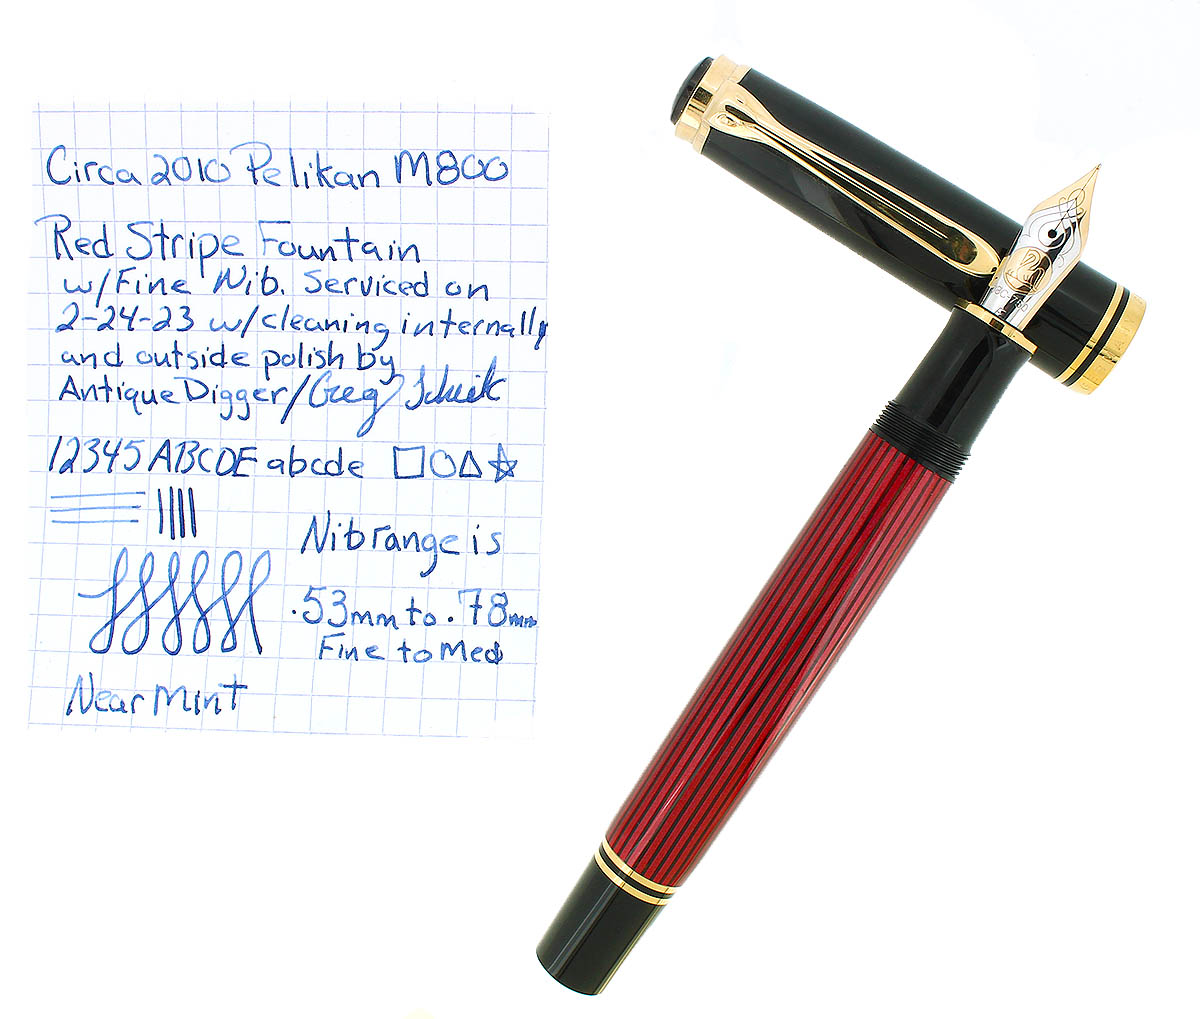 Circa 2010 Pelikan M800
Red Stripe Fountain
w/Fine Nib. Serviced on
2-24-23 w/cleaning internally
and outside polish by
Antique Digger/Greg
12345 ABCDE abcde
Nib range is
.53mm to .78mm
Fine to Med
Near Mint